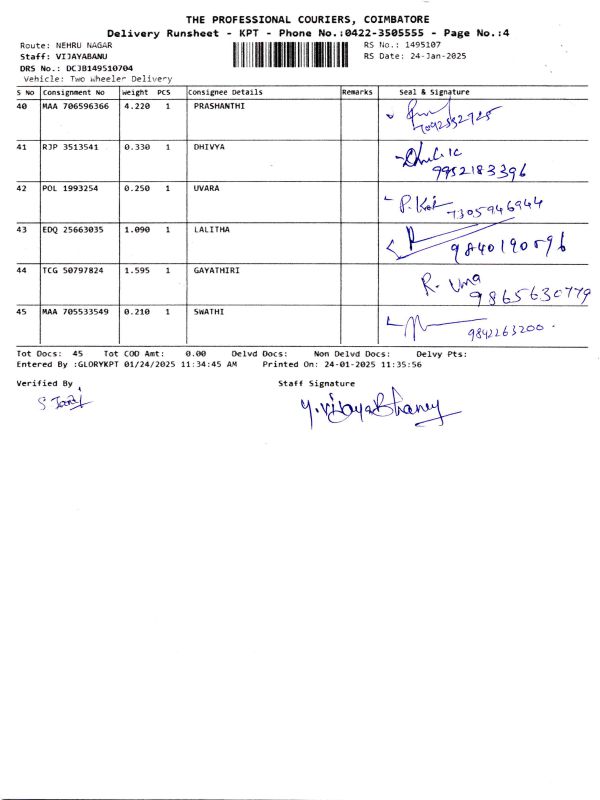 THE PROFESSIONAL COURIERS, COIMBATORE
Delivery Runsheet - KPT - Phone No.:0422-3505555 - Page No.:4
Route: NEHRU NAGAR RS No.: 1495107
Staff: VIJAYABANU RS Date: 24-Jan-2025
DRS No.: DCJB149510704
Vehicle: Two Wheeler Delivery
S No Consignment No Weight PCS Consignee Details Remarks Seal & Signature
40 MAA 706596366 4.220 1 PRASHANTHI
7092552725
41 RJP 3513541 0.330 1 DHIVYA
9952183396
42 POL 1993254 0.250 1 UVARA
7305946944
43 EDQ 25663035 1.090 1 LALITHA
9840190596
44 TCG 50797824 1.595 1 GAYATHIRI R. Uma
9865630779
45 MAA 705533549 0.210 1 SWATHI
9842263200.
Tot Docs: 45 Tot COD Amt: 0.00 Delvd Docs: Non Delvd Docs: Delvy Pts:
Entered By :GLORYKPT 01/24/2025 11:34:45 AM Printed On: 24-01-2025 11:35:56
Verified By Staff Signature